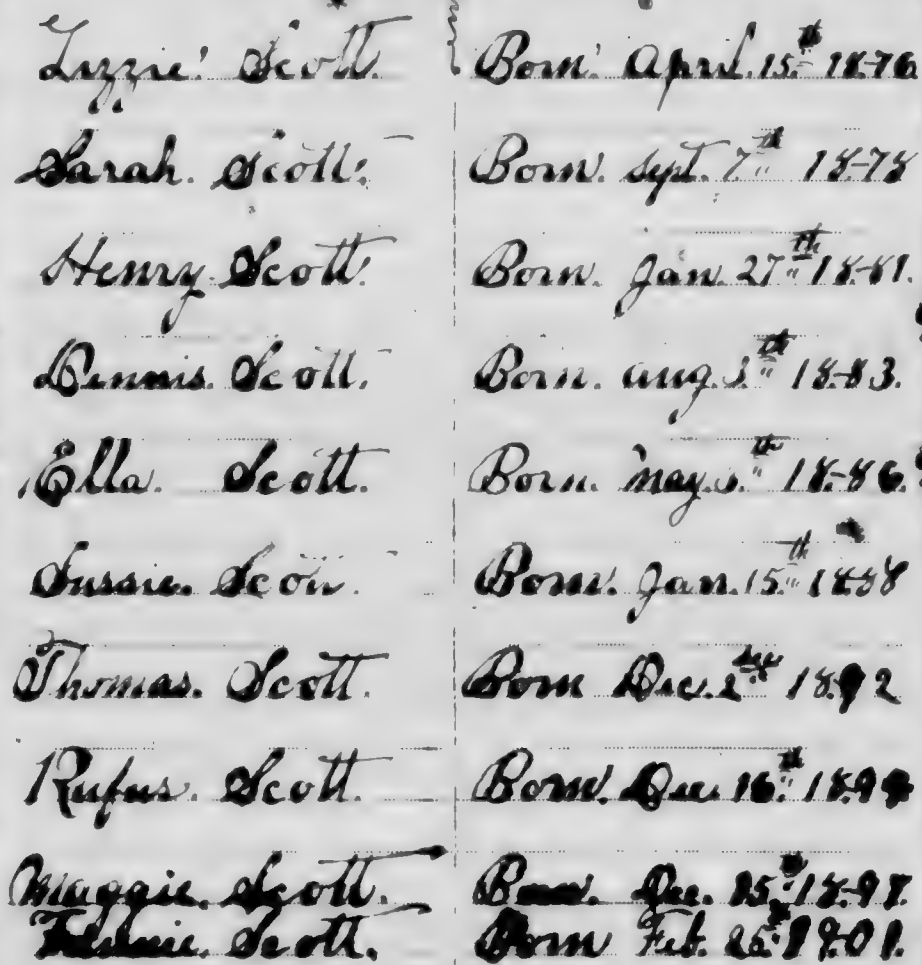 Lizzie Scott. Born April. 15.th 18-76
Sarah. Scott. Born. Sept. 7th 18-78
Henry Scott. Born. Jan. 27th 18-81.
Dennis. Scott. Born. Aug. th 18-83.
Ella. Scott. Born. May. th 18-86.
Sussie. Scott. Born. Jan. 15.th 18-88
Thomas. Scott. Born Dec. 2 18-92
Rufus. Scott. Born. Dec. 16.th
Maggie. Scott. Born. Dec.
Scott. Born Feb.